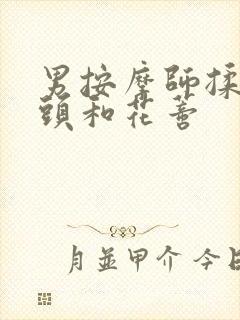 男按摩師揉
頭和花蕾
月並甲介 今日